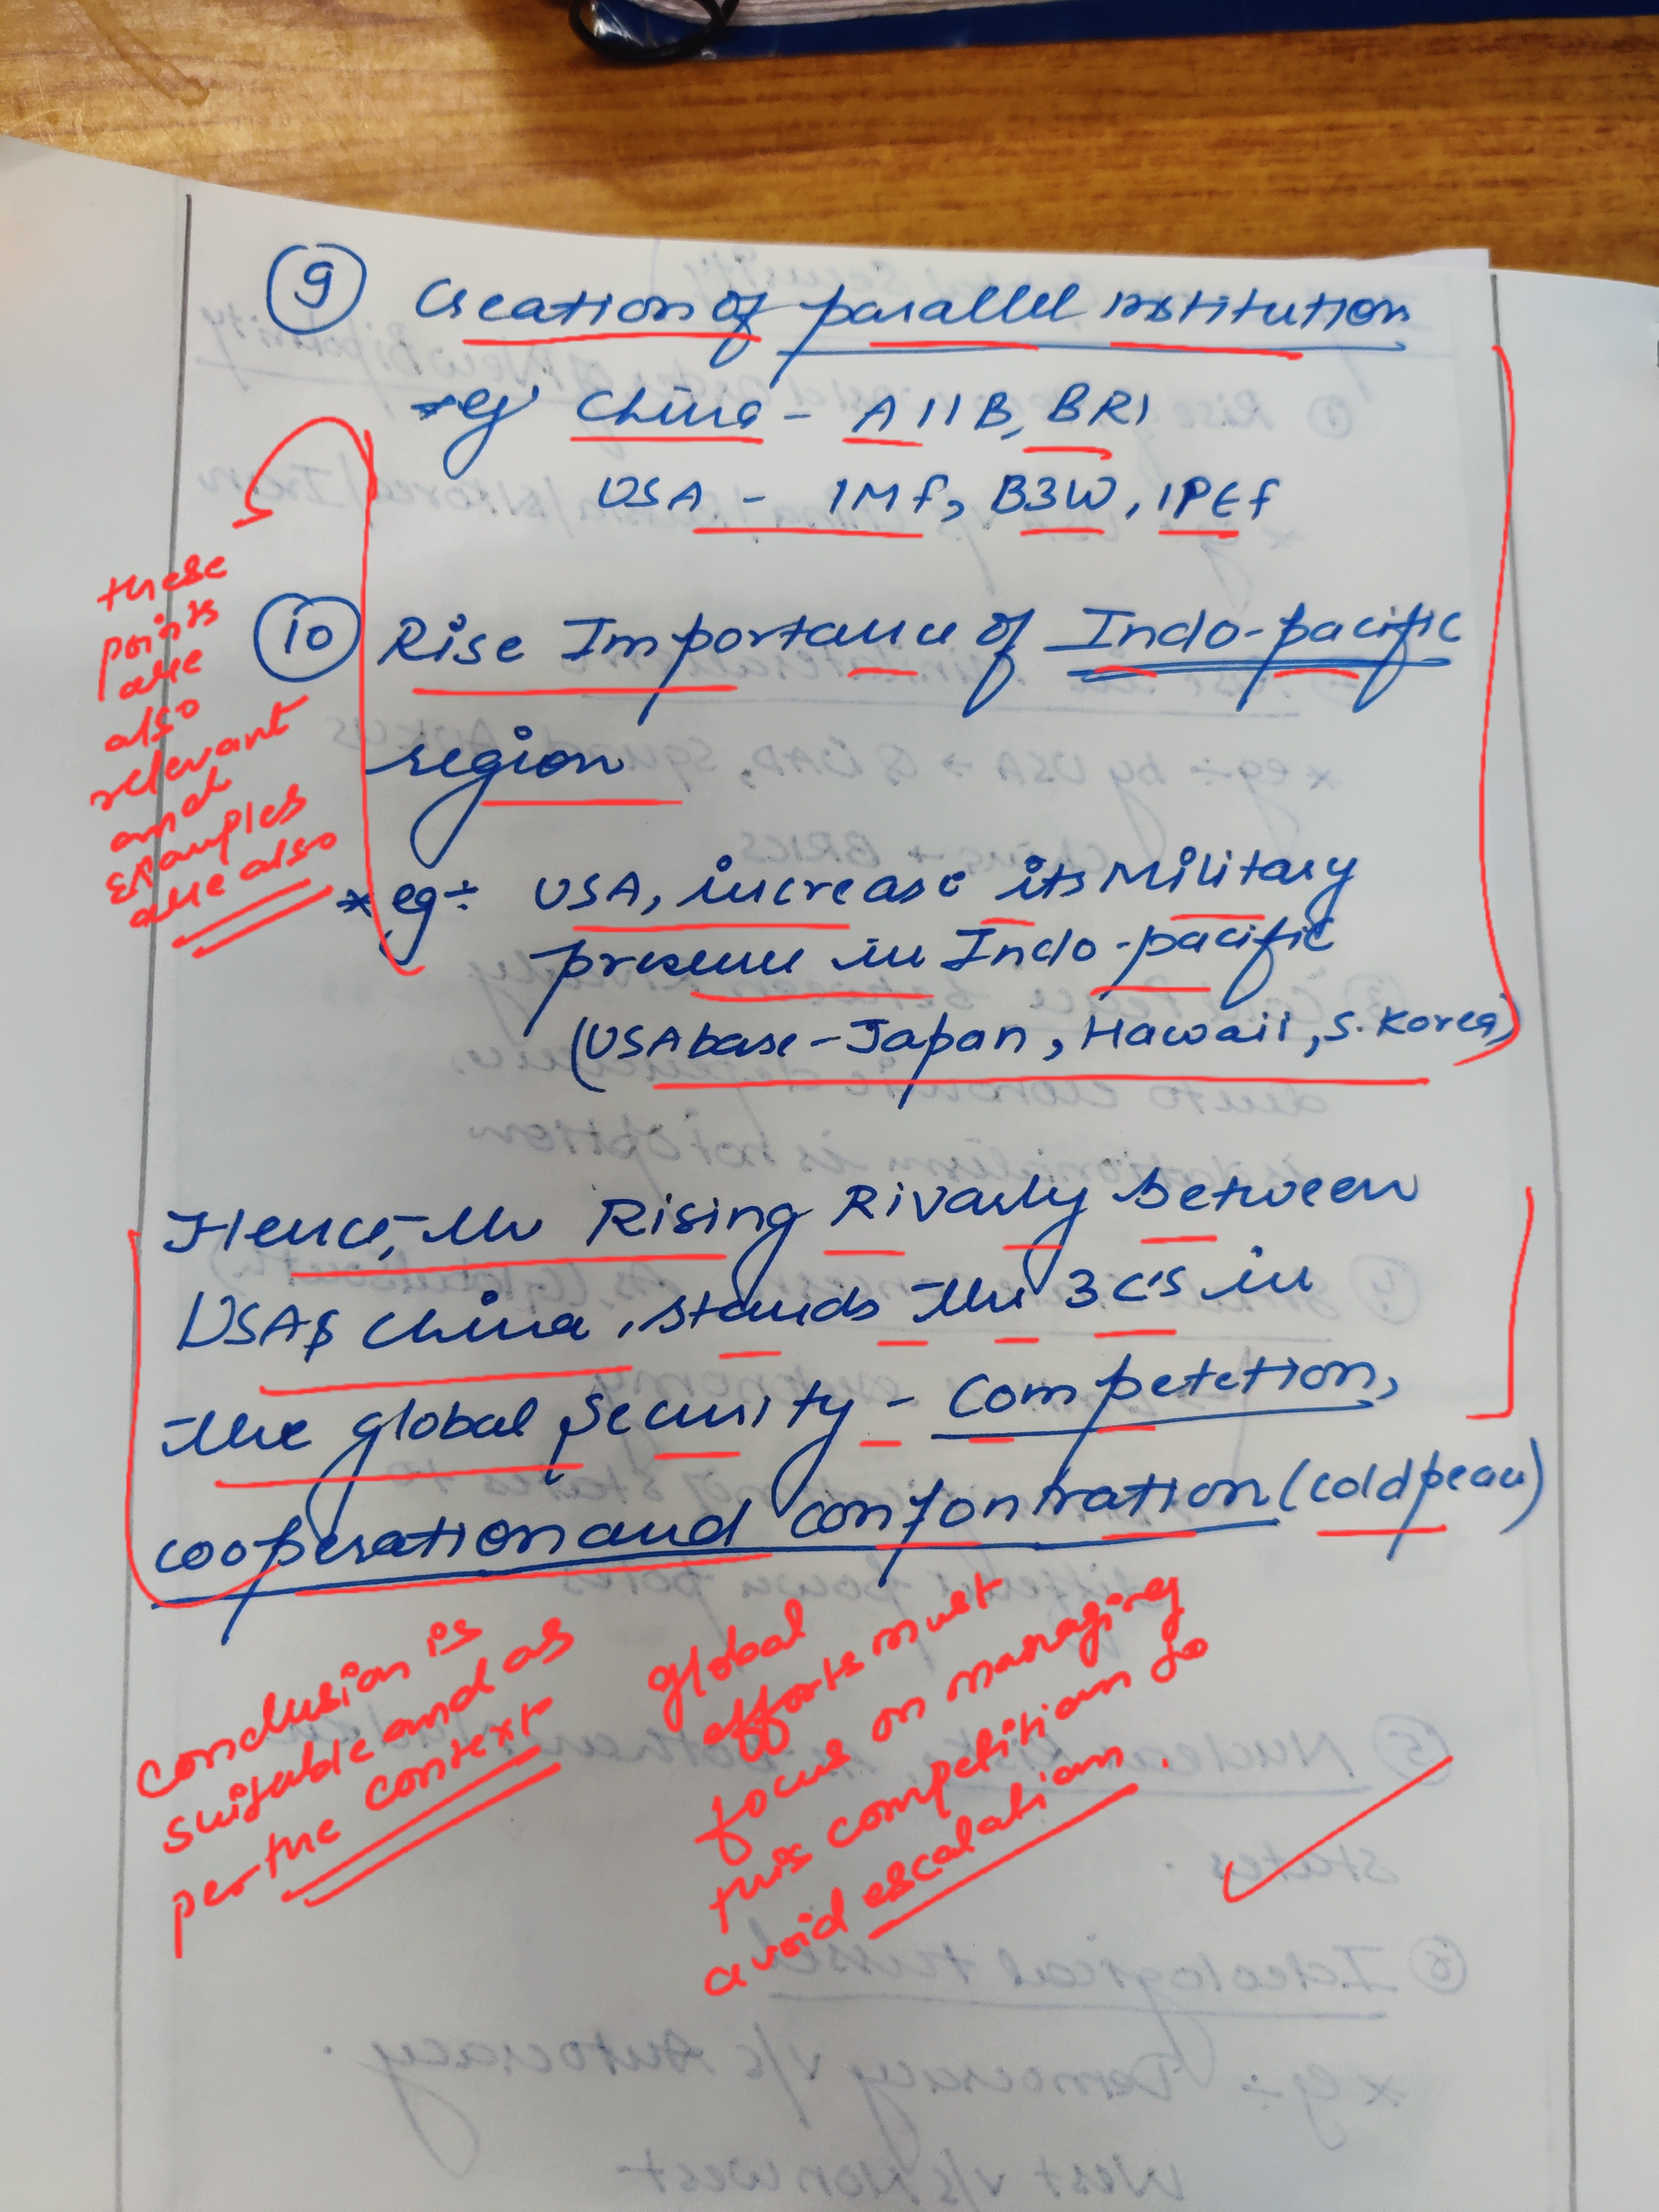 9 Creation of parallel institution
*eg China - AIIB, BRI
USA - IMF, B3W, IPEF
these
points
are
also
relevant
and
Examples
are also
10 Rise Importance of Indo-pacific
region
* eg÷ USA, increase its Military
presence in Indo-pacific
(USA base - Japan, Hawaii, S. Korea)
Hence, the Rising Rivarly between
USA & China, stands the 3 C's in
the global security - Competetion,
cooperation and confontration (cold peace)
Conclusion is
suitable and as
per the context
global
efforts must
focus on managing
this competition to
avoid escalation.